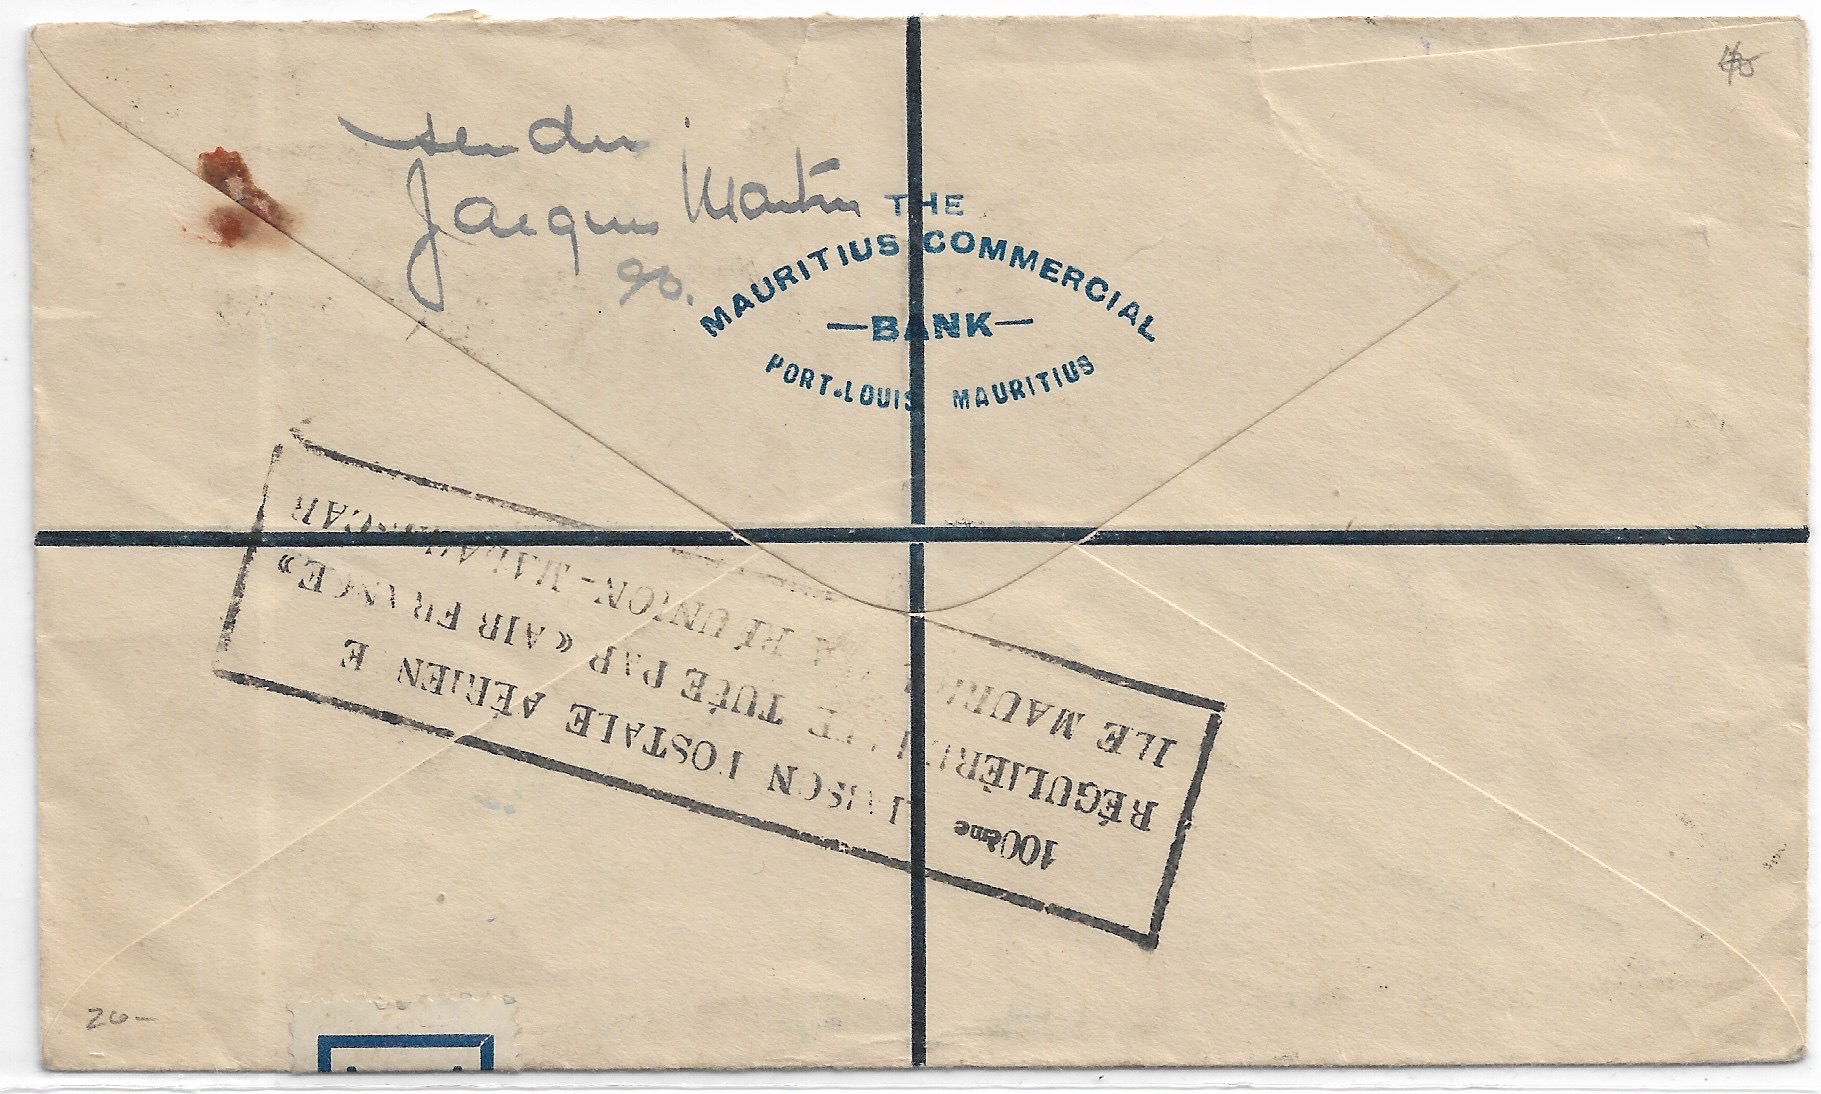 sender
Jacques Martin
c/o.
THE
MAURITIUS COMMERCIAL
—BANK—
PORT-LOUIS MAURITIUS
100ème LIAISON POSTALE AÉRIENNE
RÉGULIÈREMENT EFFECTUÉE PAR « AIR FRANCE »
ILE MAURICE - LA RÉUNION - MADAGASCAR
26-